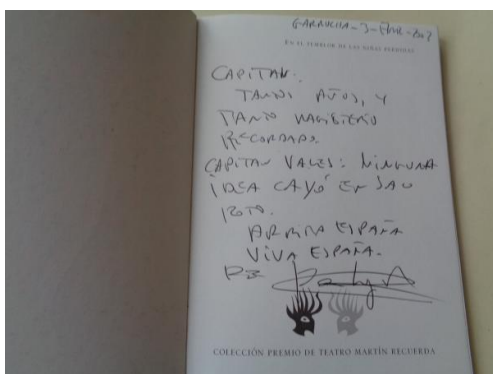 GARRUCHA-3-
EN EL TEMBLOR DE LAS NIÑAS PERDIDAS
CAPITAN.
TANTOS AÑOS, Y
TANTO MAGISTERIO
RECORDADO.
CAPITAN VALES: NINGUNA
IDEA CAYÓ EN SACO
ROTO.
ARRIBA ESPAÑA
VIVA ESPAÑA.
COLECCIÓN PREMIO DE TEATRO MARTÍN RECUERDA